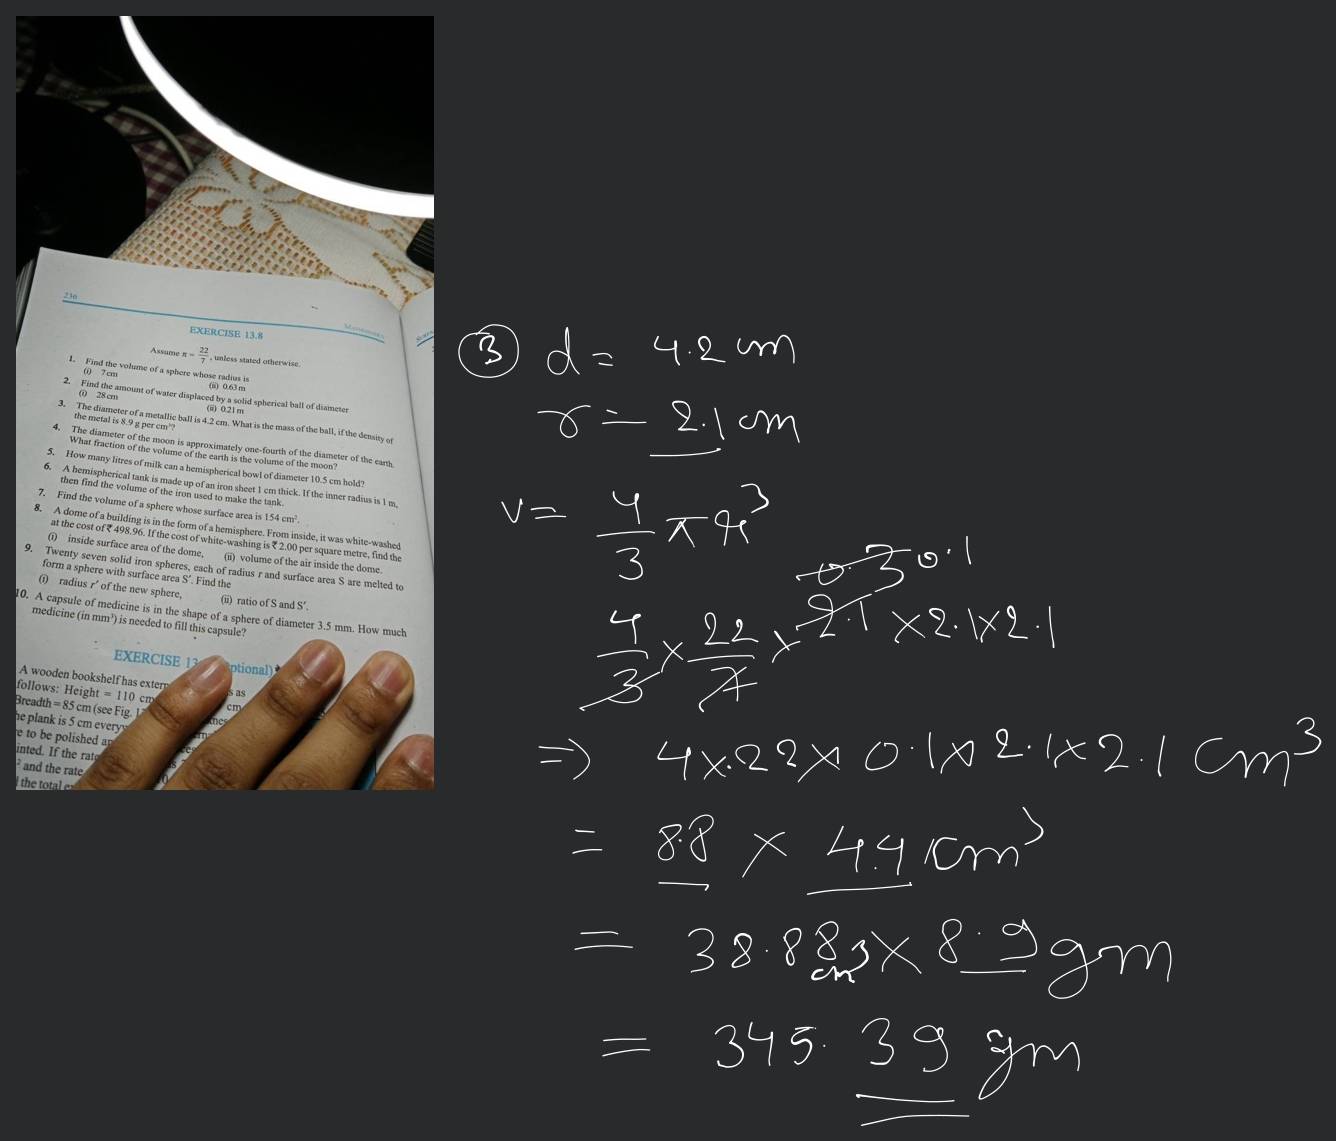 236
MATHEMATICS
EXERCISE 13.8
Assume π = 22/7, unless stated otherwise.
1. Find the volume of a sphere whose radius is
(i) 7 cm (ii) 0.63 m
2. Find the amount of water displaced by a solid spherical ball of diameter
(i) 28 cm (ii) 0.21 m
3. The diameter of a metallic ball is 4.2 cm. What is the mass of the ball, if the density of
the metal is 8.9 g per cm³?
4. The diameter of the moon is approximately one-fourth of the diameter of the earth.
What fraction of the volume of the earth is the volume of the moon?
5. How many litres of milk can a hemispherical bowl of diameter 10.5 cm hold?
6. A hemispherical tank is made up of an iron sheet 1 cm thick. If the inner radius is 1 m,
then find the volume of the iron used to make the tank.
7. Find the volume of a sphere whose surface area is 154 cm².
8. A dome of a building is in the form of a hemisphere. From inside, it was white-washed
at the cost of ₹ 498.96. If the cost of white-washing is ₹ 2.00 per square metre, find the
(i) inside surface area of the dome, (ii) volume of the air inside the dome.
9. Twenty seven solid iron spheres, each of radius r and surface area S are melted to
form a sphere with surface area S′. Find the
(i) radius r′ of the new sphere, (ii) ratio of S and S′.
10. A capsule of medicine is in the shape of a sphere of diameter 3.5 mm. How much
medicine (in mm³) is needed to fill this capsule?
EXERCISE 13 ptional)*
A wooden bookshelf has extern s as
follows: Height = 110 cm cm
Breadth = 85 cm (see Fig. 1
he plank is 5 cm every
e to be polished an
inted. If the rate
² and the rate
the total e
③ d = 4.2 cm
r = 2.1 cm
v = 4/3 π r³
0.3 0.1
4/3 × 22/7 × 2.1 × 2.1 × 2.1
⇒ 4×22× 0.1× 2.1×2.1 cm³
= 8.8 × 4.41 cm³
= 38.88 cm³ × 8.9 gm
= 345.39 gm